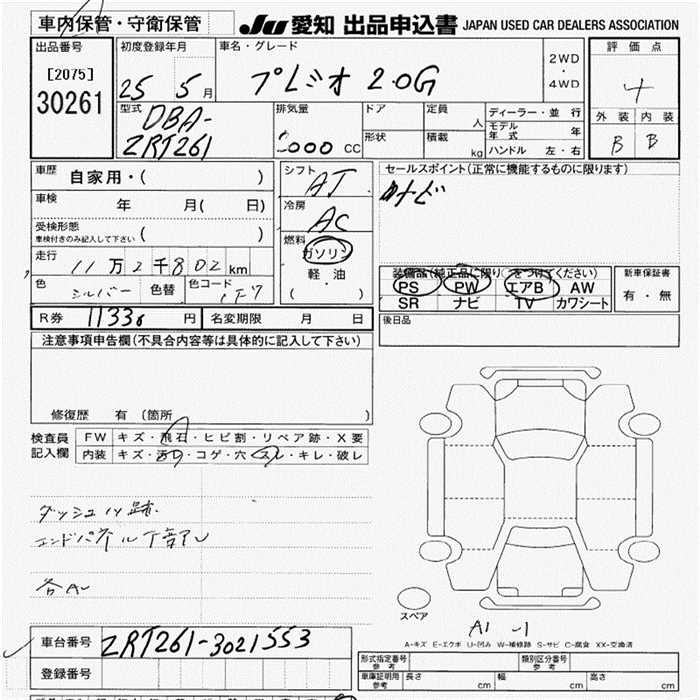 車内保管・守衛保管
JU 愛知 出品申込書 JAPAN USED CAR DEALERS ASSOCIATION
出品番号
[2075]
30261
初度登録年月
25 5月
車名・グレード
プレミオ 2.0G
2WD
・
4WD
評価点
4
外装 内装
B B
型式
DBA-
ZRT261
排気量
2000 CC
ドア
形状
定員
人
積載
kg
ディーラー・並 行
モデル年式 年
ハンドル 左・右
車歴
自家用・( )
車検
年 月( 日)
受検形態
車検付きのみ記入して下さい ( )
走行
11万2千802km
色
シルバー
色替
色コード
1F7
シフト
AT
冷房
AC
燃料
ガソリン
・
軽油
( )
セールスポイント(正常に機能するものに限ります)
ナビ
装備品(純正品に限り○をつけてください)
PS PW エアB AW
SR ナビ TV カワシート
新車保証書
有・無
後日品
R券 11330 円
名変期限 月 日
注意事項申告欄(不具合内容等は具体的に記入して下さい)
修復歴 有 (箇所 )
検査員
記入欄
FW キズ・飛石・ヒビ割・リペア跡・X要
内装 キズ・汚れ・コゲ・穴・スレ・キレ・破レ
ダッシュ ハ跡
エンドパネル下部アU
各A
スペア
A1 -1
A-キズ E-エクボ U-凹み W-補修跡 S-サビ C-腐食 XX-交換済
車台番号
ZRT261-3021553
登録番号
形式指定番号
参考
類別区分番号
参考
車庫証明用
参考
長さ cm
幅 cm
高さ cm